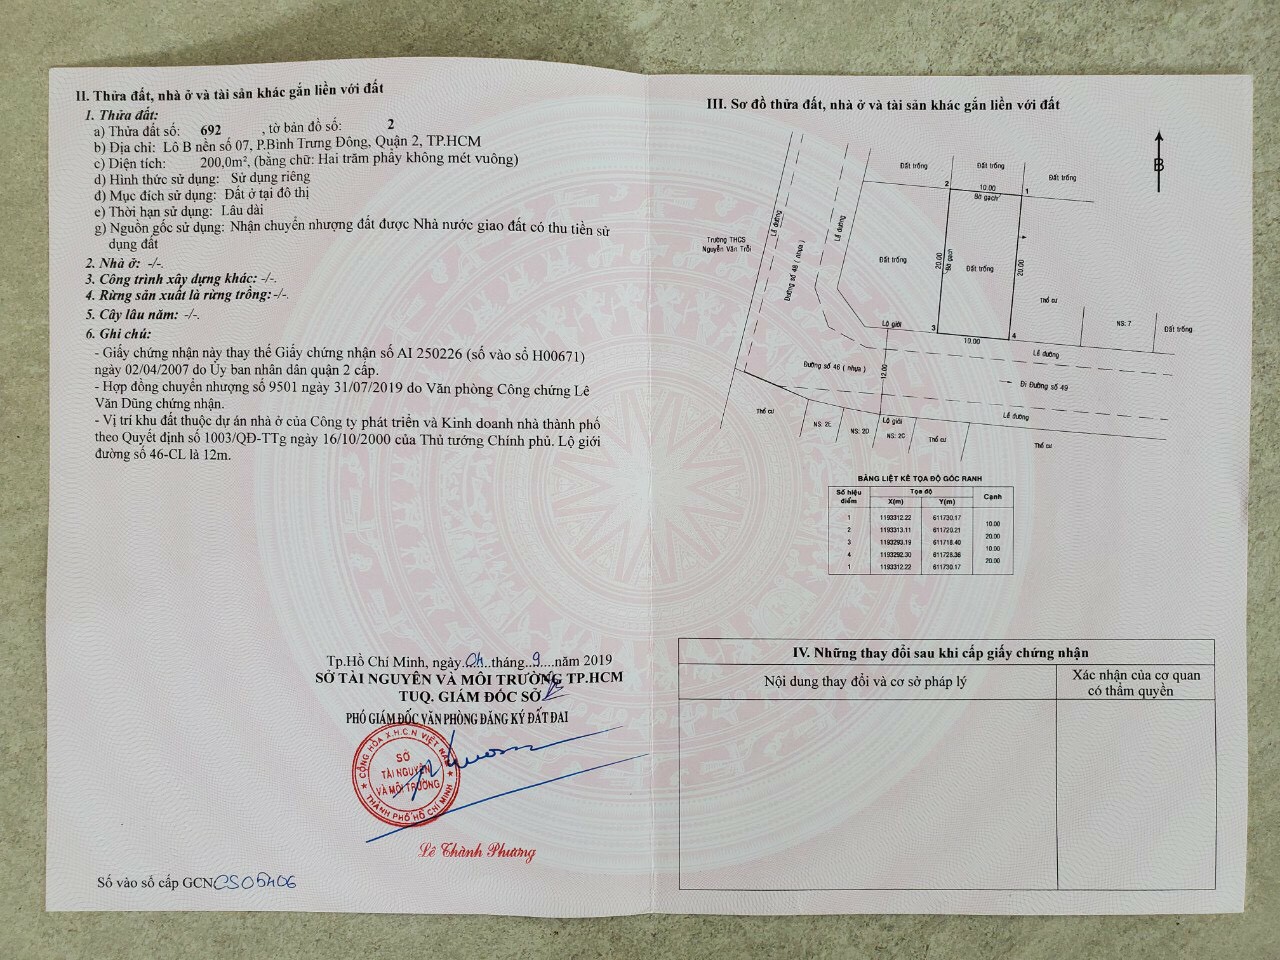 II. Thửa đất, nhà ở và tài sản khác gắn liền với đất
1. Thửa đất:
a) Thửa đất số: 692 , tờ bản đồ số: 2
b) Địa chỉ: Lô B nền số 07, P.Bình Trưng Đông, Quận 2, TP.HCM
c) Diện tích: 200,0m², (bằng chữ: Hai trăm phẩy không mét vuông)
d) Hình thức sử dụng: Sử dụng riêng
đ) Mục đích sử dụng: Đất ở tại đô thị
e) Thời hạn sử dụng: Lâu dài
g) Nguồn gốc sử dụng: Nhận chuyển nhượng đất được Nhà nước giao đất có thu tiền sử
dụng đất
2. Nhà ở: -/-.
3. Công trình xây dựng khác: -/-.
4. Rừng sản xuất là rừng trồng:-/-.
5. Cây lâu năm: -/-.
6. Ghi chú:
- Giấy chứng nhận này thay thế Giấy chứng nhận số AI 250226 (số vào sổ H00671)
ngày 02/04/2007 do Ủy ban nhân dân quận 2 cấp.
- Hợp đồng chuyển nhượng số 9501 ngày 31/07/2019 do Văn phòng Công chứng Lê
Văn Dũng chứng nhận.
- Vị trí khu đất thuộc dự án nhà ở của Công ty phát triển và Kinh doanh nhà thành phố
theo Quyết định số 1003/QĐ-TTg ngày 16/10/2000 của Thủ tướng Chính phủ. Lộ giới
đường số 46-CL là 12m.
Tp.Hồ Chí Minh, ngày..04..tháng..9....năm 2019
SỞ TÀI NGUYÊN VÀ MÔI TRƯỜNG TP.HCM
TUQ. GIÁM ĐỐC SỞ
PHÓ GIÁM ĐỐC VĂN PHÒNG ĐĂNG KÝ ĐẤT ĐAI
CỘNG HÒA X.H.C.N VIỆT NAM
SỞ
TÀI NGUYÊN
VÀ MÔI TRƯỜNG
THÀNH PHỐ HỒ CHÍ MINH
Lê Thành Phương
Số vào sổ cấp GCN CS05406
III. Sơ đồ thửa đất, nhà ở và tài sản khác gắn liền với đất
B
Đất trống
Đất trống
Đất trống
2
10.00
1
Bờ gạch
Lề đường
Lề đường
Trường THCS
Nguyễn Văn Trỗi
Đường số 48 ( nhựa )
Đất trống
20.00
Bờ gạch
Đất trống
20.00
Thổ cư
NS: 7
Đất trống
Lộ giới
3
10.00
4
Lề đường
Đường số 46 ( nhựa )
12.00
Đi Đường số 49
Lề đường
Thổ cư
NS: 2E
NS: 2D
Lộ giới
NS: 2C
Thổ cư
Thổ cư
BẢNG LIỆT KÊ TỌA ĐỘ GÓC RANH
Số hiệu điểm Tọa độ Cạnh
X(m) Y(m)
1 1193312.22 611730.17
10.00
2 1193313.11 611720.21
20.00
3 1193293.19 611718.40
10.00
4 1193292.30 611728.36
20.00
1 1193312.22 611730.17
IV. Những thay đổi sau khi cấp giấy chứng nhận
Nội dung thay đổi và cơ sở pháp lý
Xác nhận của cơ quan
có thẩm quyền